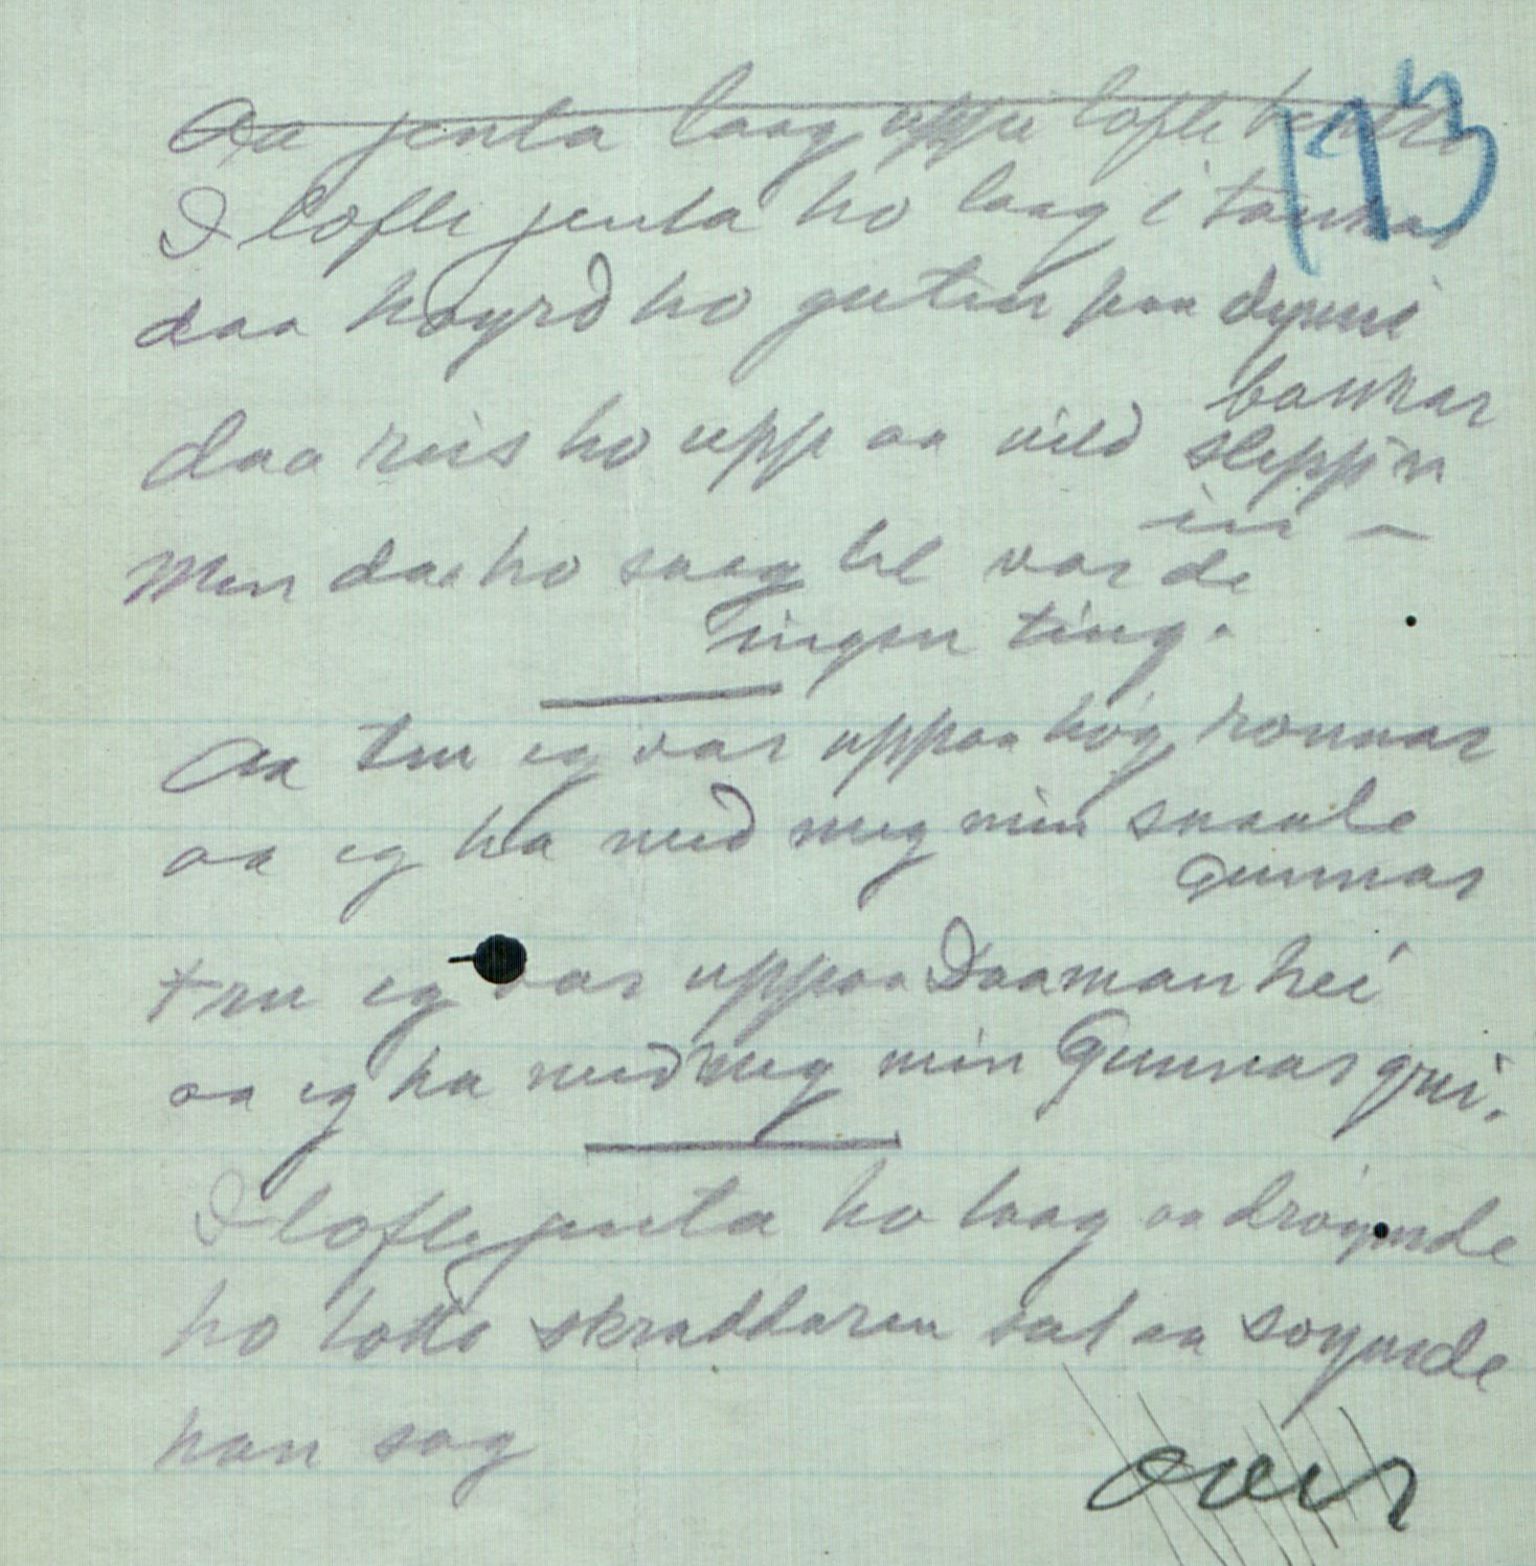 173
Aa jenta laag uppi lofte
I lofte jenta ho laag i tankar
daa høyrd ho guten paa dynni
bankar
daa reis ho upp aa vild sleppn
in –
Men daa ho saag te var de
ingen ting.
Aa tru eg var uppaa høg ronnar
aa eg ha med meg min snaale
Gunnar
tru eg var uppaa Daamanhei
aa eg ha med meg min Gunnar grei.
I lofte jenta ho laag aa drøymde
ho totte skraddaren sat aa søymde
han sag
over